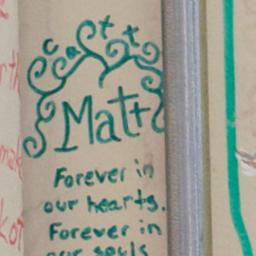 Matt
Forever in
our hearts.
Forever in
our souls